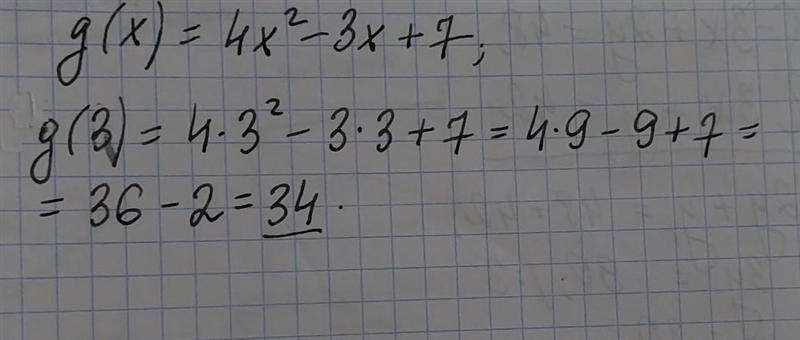 g(x) = 4x² - 3x + 7;
g(3) = 4·3² - 3·3 + 7 = 4·9 - 9 + 7 =
= 36 - 2 = 34.